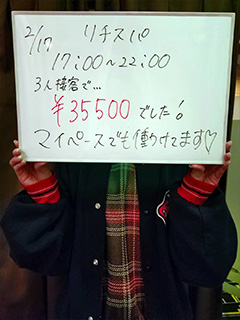 2/17 リチスパ
17:00～22:00
3人接客で…
¥35500でした!
マイペースでも働けてます♡